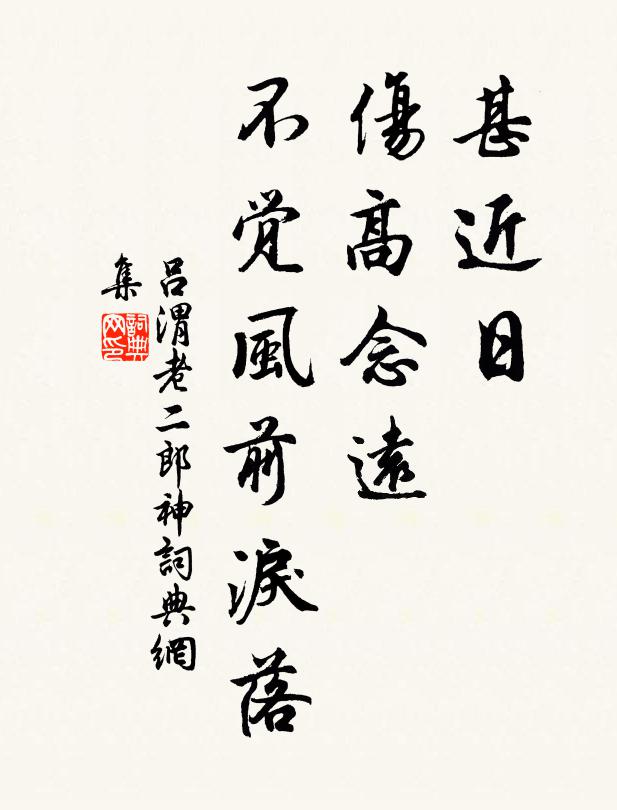 甚近日
傷高念遠
不覚風前淚落
呂渭老二郎神詞典網
集
詞典
网印